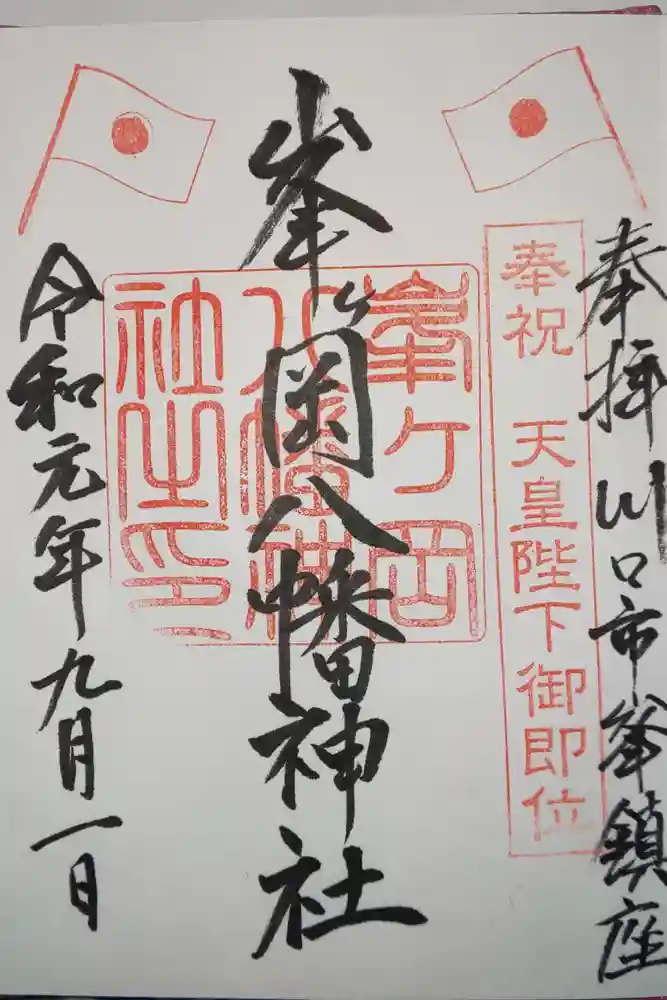 奉拝 川口市峯鎮座
奉祝 天皇陛下御即位
峯ヶ岡八幡神社
峯ケ岡
八幡神
社之印
令和元年九月一日